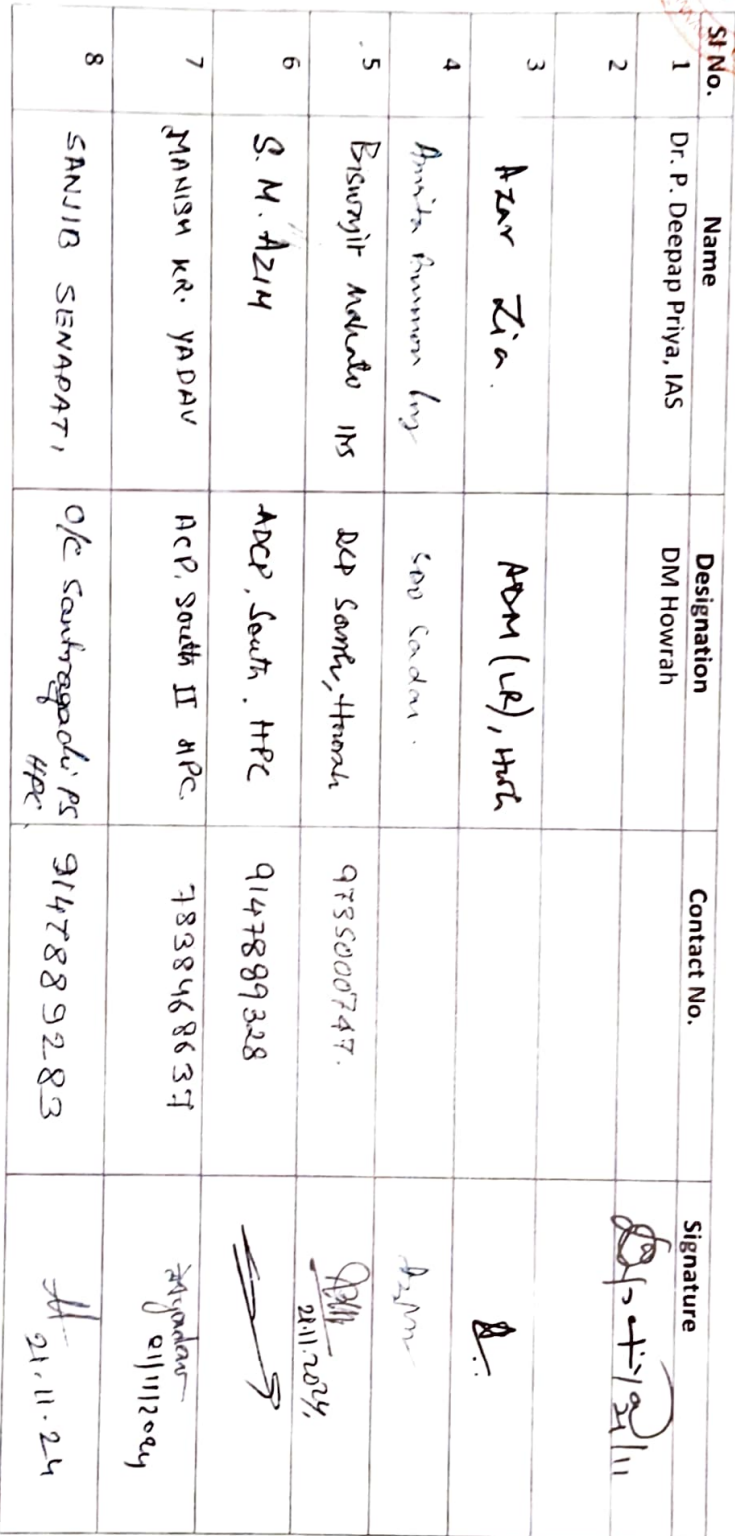 Sl No. Name Designation Contact No. Signature
1 Dr. P. Deepap Priya, IAS DM Howrah
21/11
2
3 Azar Zia. ADM (LR), Hwh
4 Amrita SDO Sadar.
5 Biswajit Mahato IPS DCP South, Howrah 9735000747.
21.11.2024
6 S. M. AZIM ADCP, South, HPC 9147889328
7 MANISH KR. YADAV ACP, South II HPC. 7838468637
21/11/2024
8 SANJIB SENAPATI O/C Santragachi PS 9147889283
HPC
21.11.24